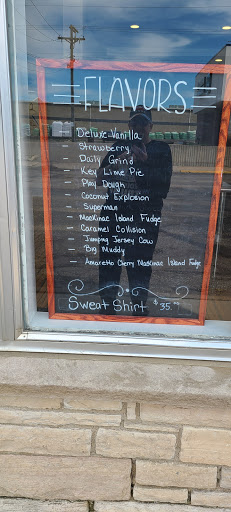 FLAVORS
- Deluxe Vanilla -
- Strawberry
- Daily Grind
- Key Lime Pie
- Play Dough
- Coconut Explosion
- Superman
- Mackinac Island Fudge
- Caramel Collision
- Jumping Jersey Cow
- Big Muddy
- Amaretto Cherry Mackinac Island Fudge
Sweat Shirt $35.00